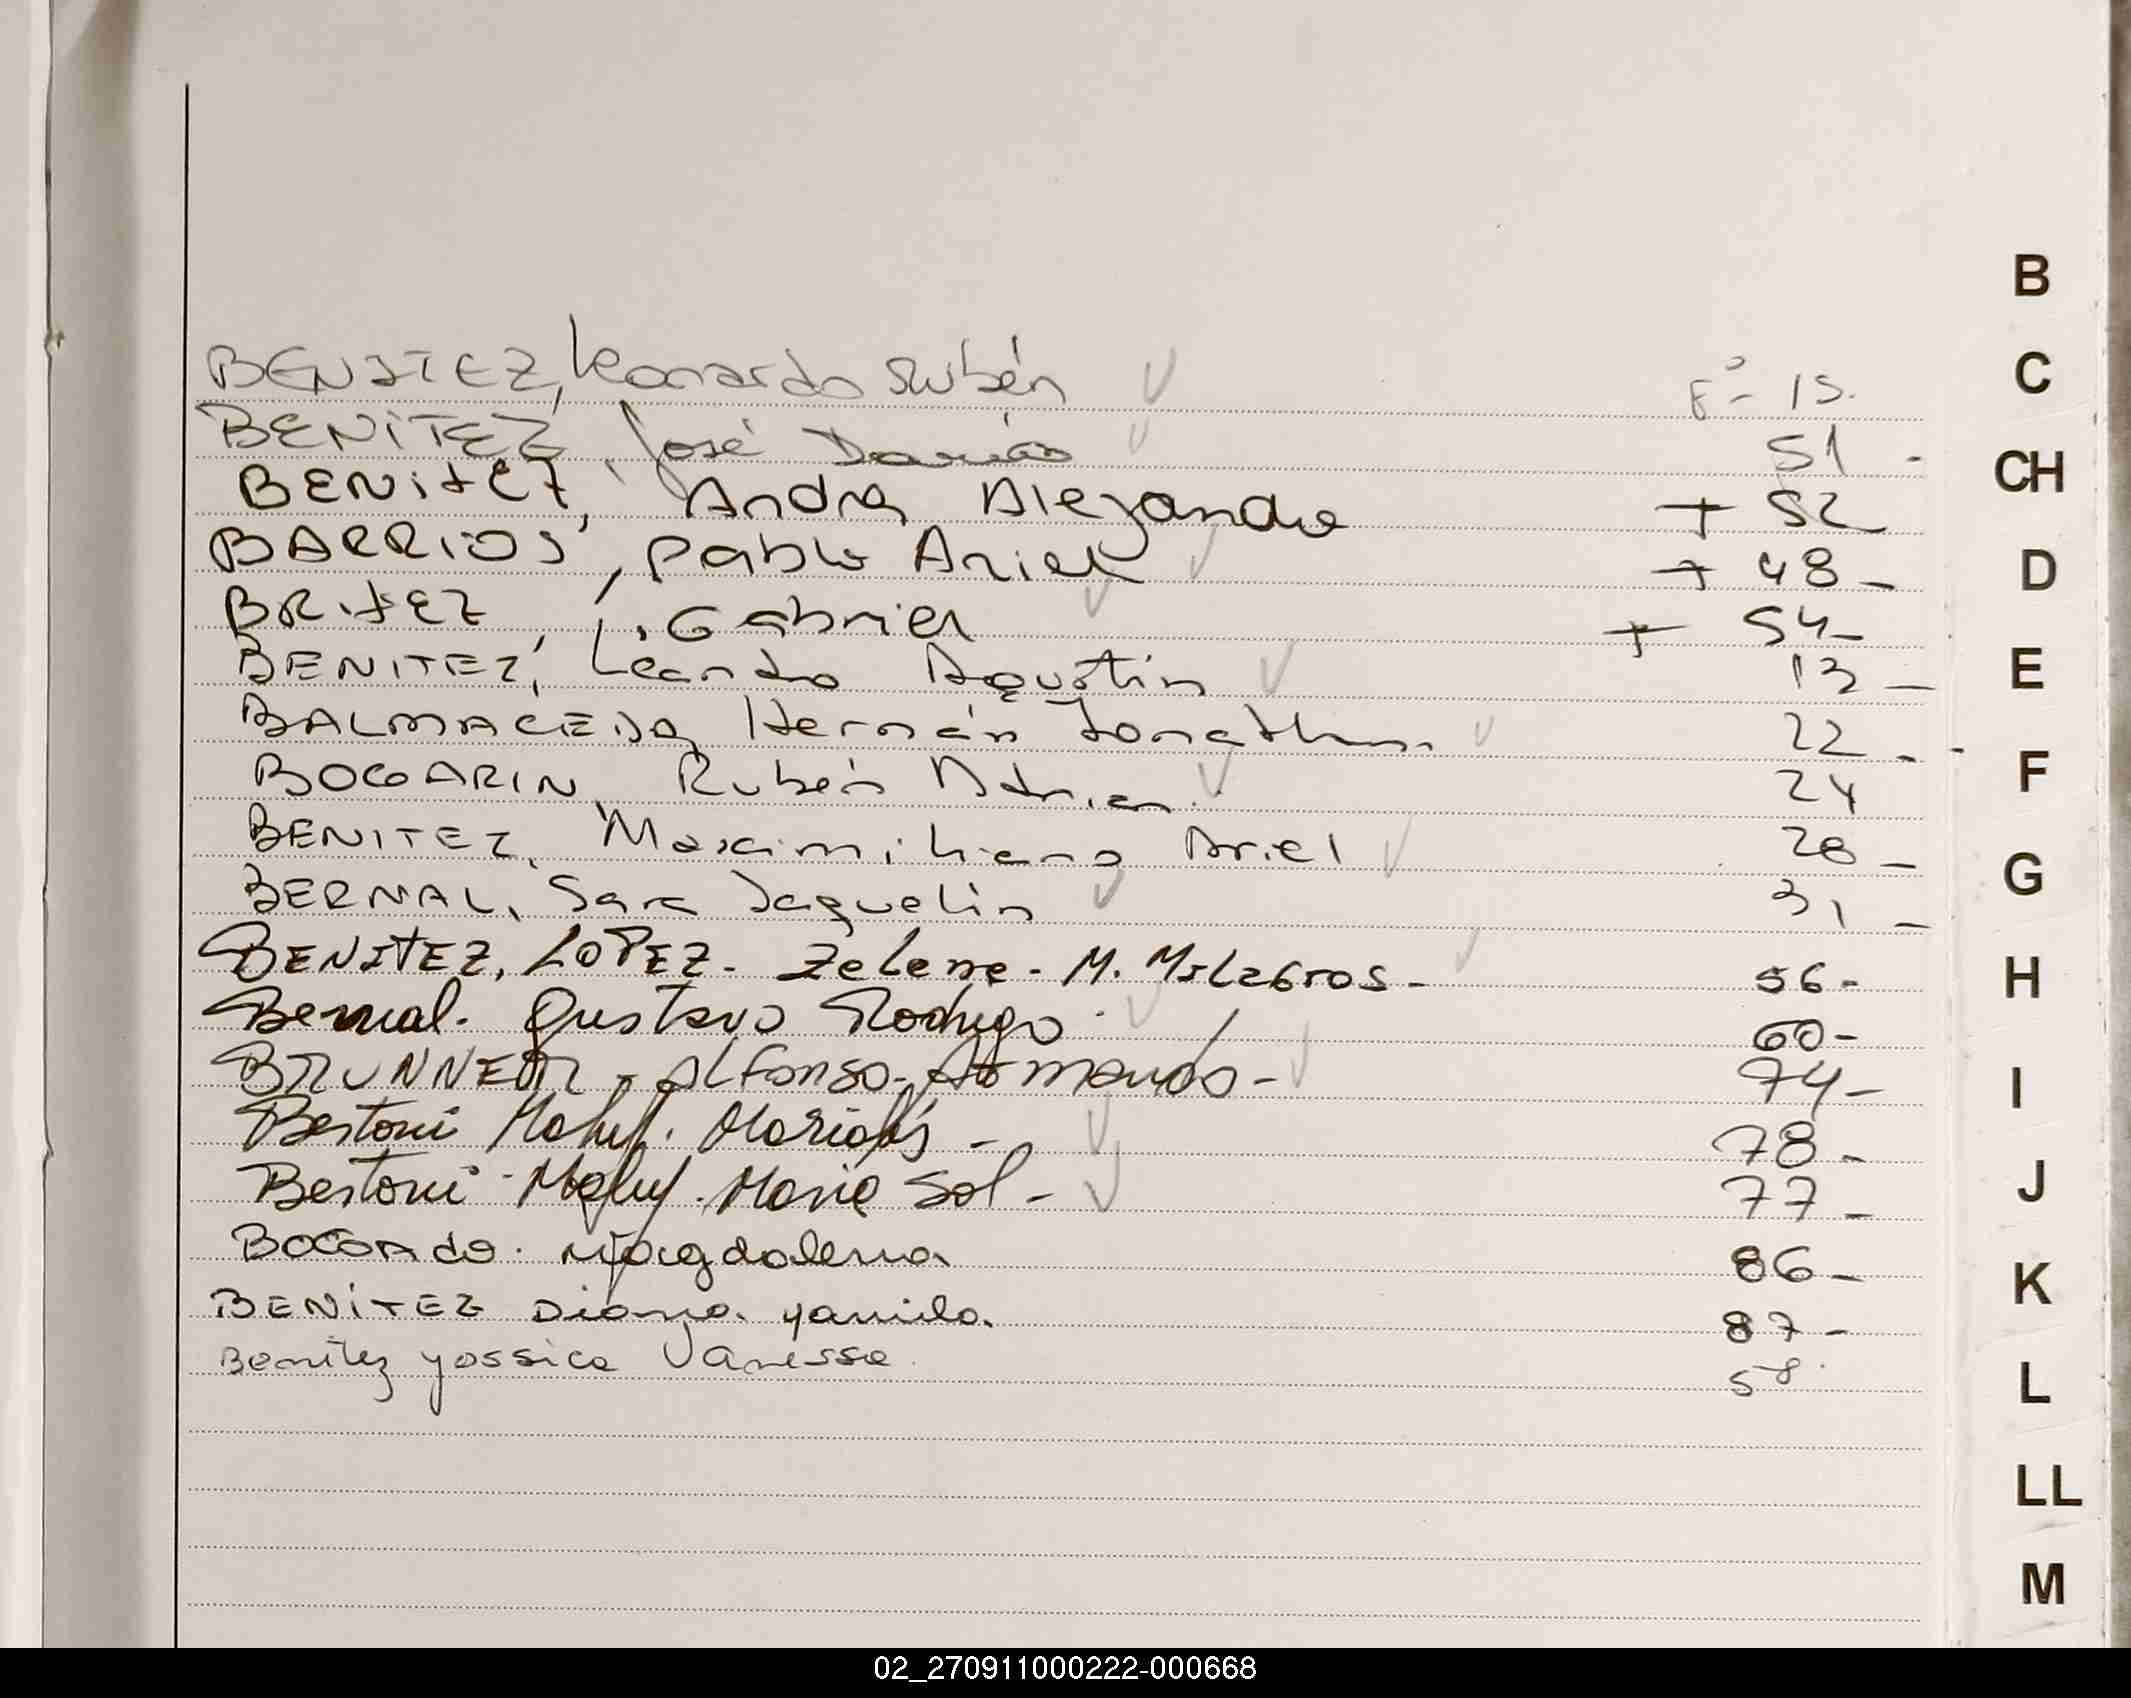 BENITEZ, Leonardo Rubén F° - 15.
BENITEZ, José Darío 51 -
BENitEZ, Andrs Alejandro + 52
BARRIOS, Pablo Ariel + 48 -
BRitEZ, L. Gabriel + 54 -
BENITEZ, Leandro Agustín 13 -
BALMACEDA, Hernán Jonathan 22 -
BOGARIN, Rubén Adrian. 24
BENITEZ, Maximiliano Ariel 28 -
BERNAL, Sara Jaquelin 31 -
BENITEZ, LOPEZ - Zelene - M. Milagros - 56 -
Bernal. Gustavo Rodrigo. 60 -
BRUNNER - Alfonso - Armando - 74 -
Bertoni Mahuf. Marialís - 78 -
Bertoni - Mahuf. Maria Sol - 77 -
BOGAdo. Magdalena 86 -
BENÍTEZ Diana yamila. 87 -
Benitez yossica Vanessa. 58.
B
C
CH
D
E
F
G
H
I
J
K
L
LL
M
02_270911000222-000668